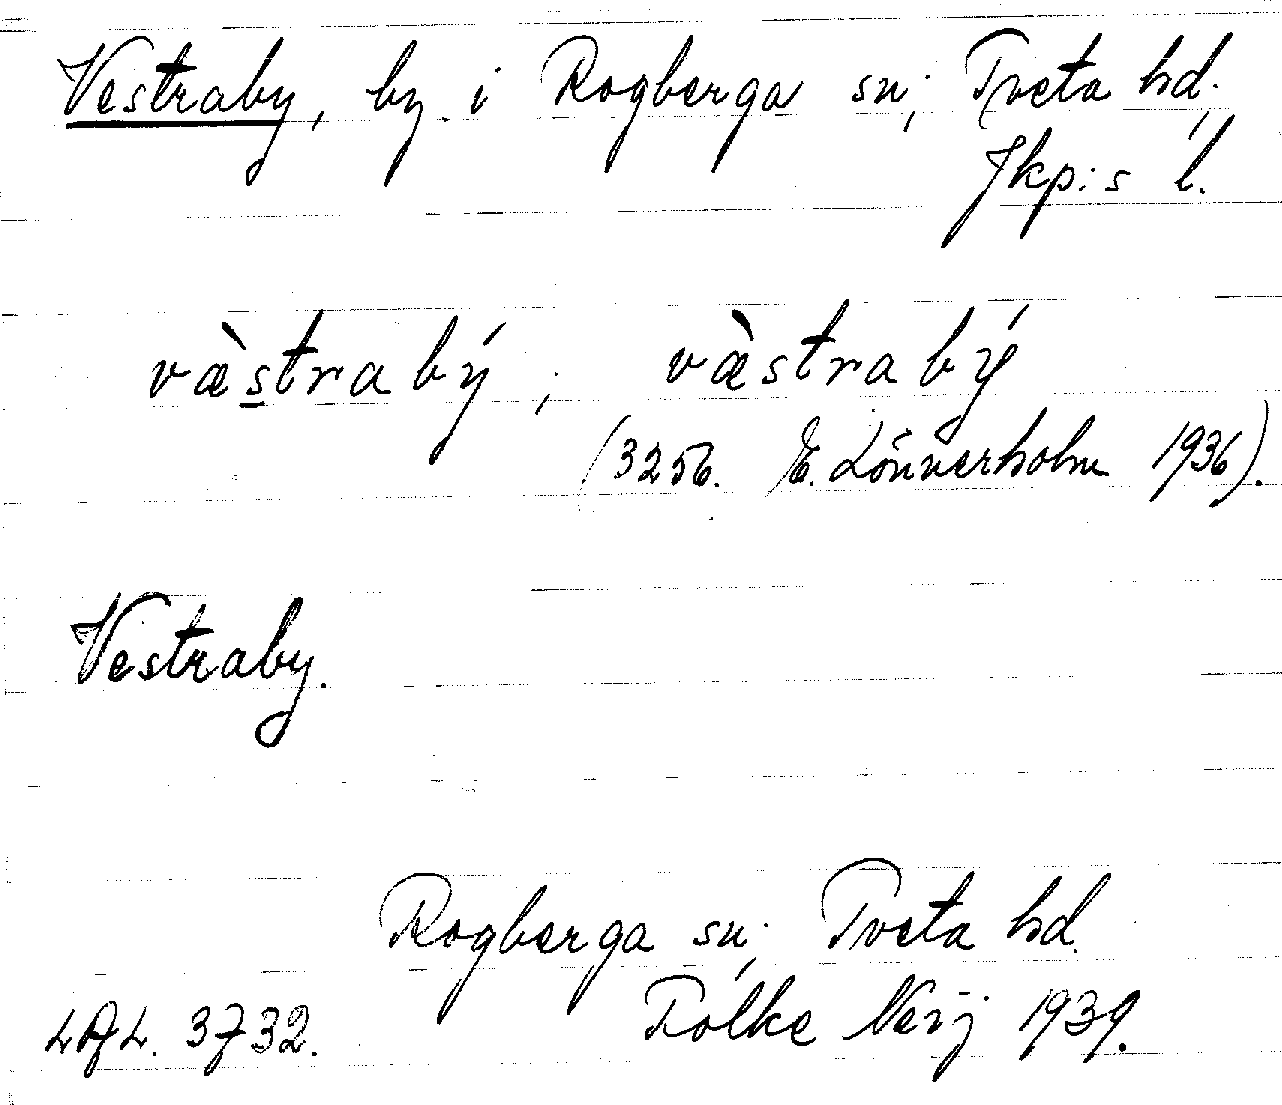 Vestraby, by i Rogberga sn; Tveta hd.
Jkp:s l.
væ̀strabý; væ̀strabý
(3256. E. Lönnerholm 1936).
Vestraby.
Rogberga sn; Tveta hd.
Folke Neij 1939.
3732.